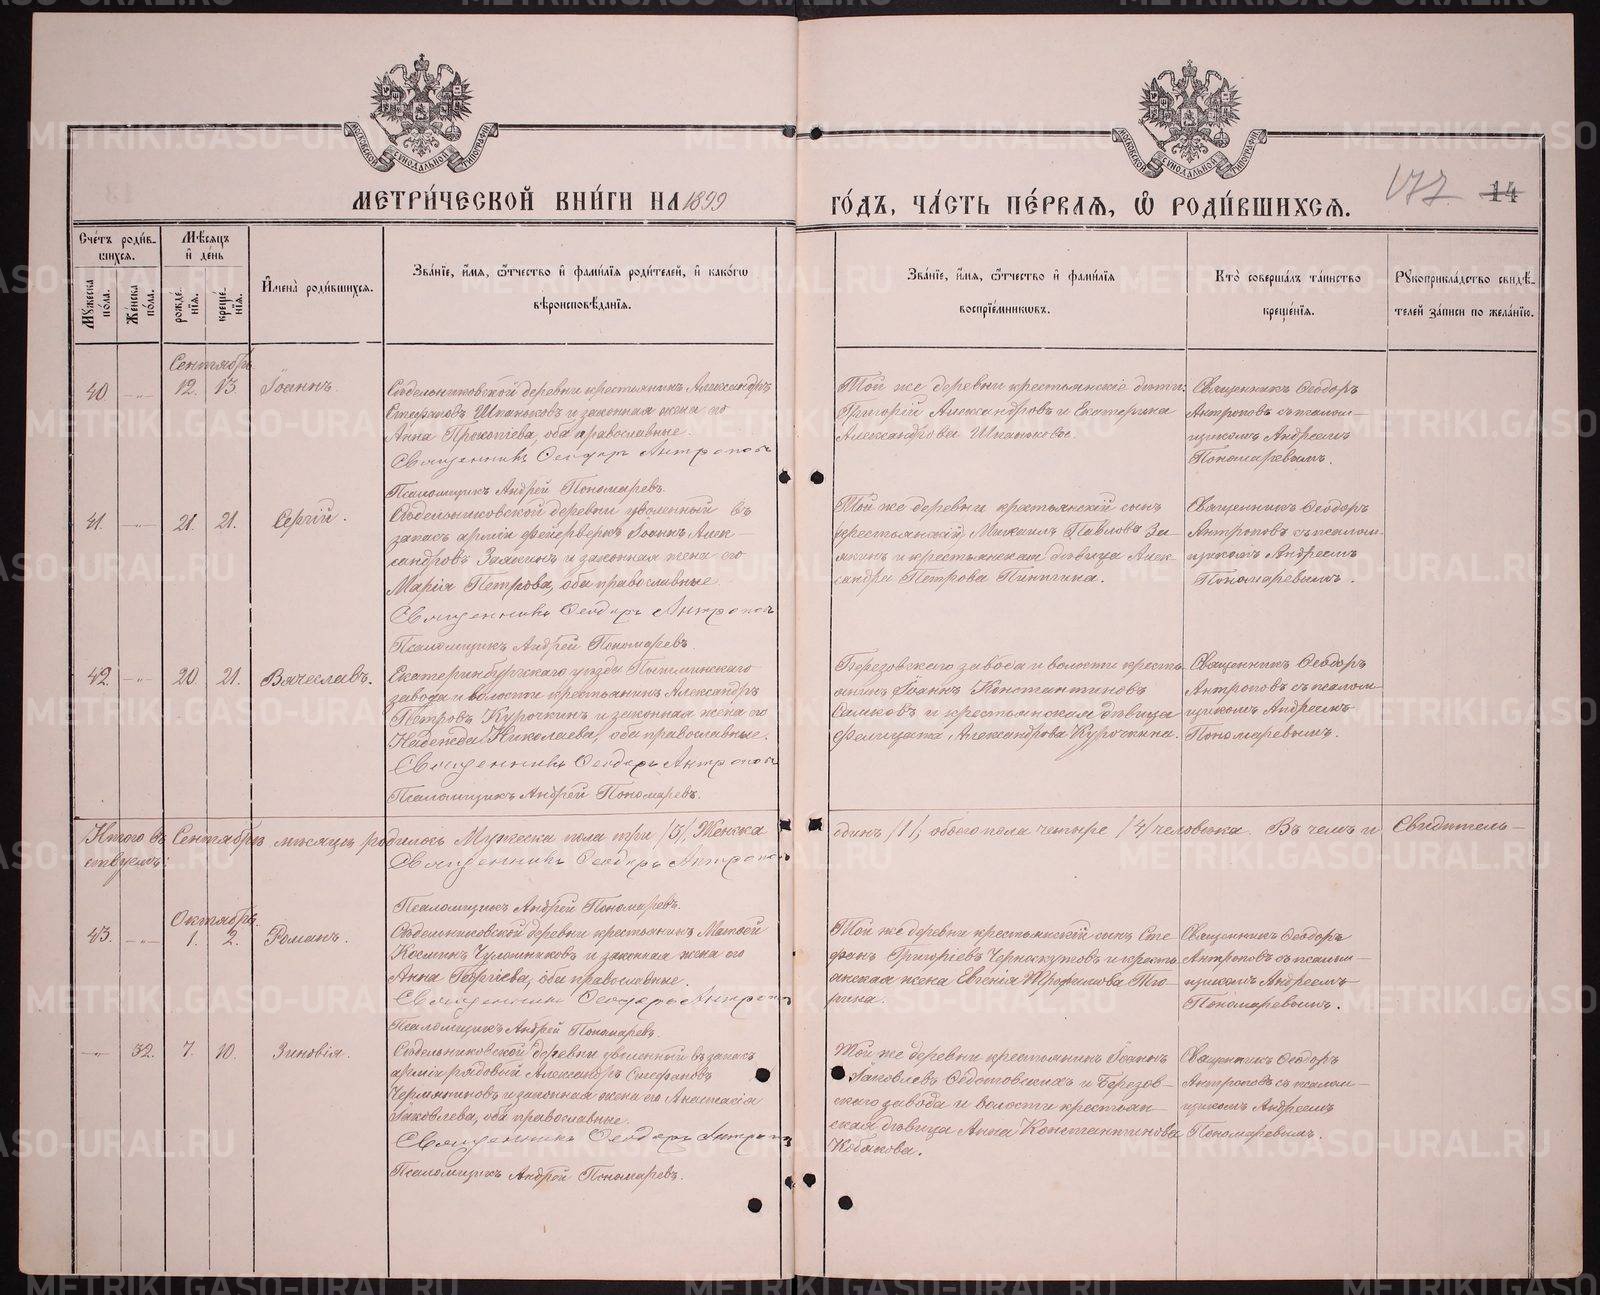 МЕТРИ́ЧЕСКОЙ КНИ́ГИ НА 1899
ГО́ДЪ, ЧА́СТЬ ПЕ́РВАЯ, Ѡ РОДИ́ВШИХСЯ.
177 14
Сче́тъ роди́вшихся.
Мѣ́сяцъ и҆ де́нь
Мꙋжеска по́ла.
Же́нска по́ла.
рожде́нїѧ.
креще́нїѧ.
И҆мена̀ роди́вшихся.
Зва́нїе, и҆́мѧ, ѻ҆́тчество и҆ фами́лїѧ роди́телей, и҆ како́гѡ
вѣроисповѣ́данїѧ.
Зва́нїе, и҆́мѧ, ѻ҆́тчество и҆ фами́лїѧ
воспрїе́мникѡвъ.
Кто̀ соверша́лъ та́инство
креще́нїѧ.
Рꙋкоприкла́дство свидѣ́телей за́писи по жела́нїю.
Сентябрь.
40 -"- 12. 13. Іоаннъ.
Сѣдельниковской деревни крестьянинъ Александръ
Стефановъ Шпаньковъ и законная жена его
Анна Прокопіева, оба православные.
Священникъ Ѳеодоръ Антроповъ
Псаломщикъ Андрей Пономаревъ.
Той же деревни крестьянскіе дѣти:
Григорій Александровъ и Екатерина
Александрова Шпаньковы.
Священникъ Ѳеодоръ
Антроповъ съ псалом-
щикомъ Андреемъ
Пономаревымъ.
41. -"- 21. 21. Сергій.
Сѣдельниковской деревни уволенный въ
запасъ арміи фейерверкъ Іоаннъ Алек-
сандровъ Зыкинъ и законная жена его
Марія Петрова, оба православные.
Священникъ Ѳеодоръ Антроповъ
Псаломщикъ Андрей Пономаревъ.
Той же деревни крестьянскій сынъ
Михаилъ Павловъ
и крестьянская дѣвица Алек-
сандра Петрова Пинягина.
Священникъ Ѳеодоръ
Антроповъ съ псалом-
щикомъ Андреемъ
Пономаревымъ.
42. -"- 20 21. Вячеславъ.
Екатеринбургскаго уѣзда Пышминскаго
завода и волости крестьянинъ Александръ
Петровъ Курочкинъ и законная жена его
Надежда Николаева, оба православные.
Священникъ Ѳеодоръ Антроповъ
Псаломщикъ Андрей Пономаревъ.
Березовскаго завода и волости кресть-
янинъ Іоаннъ Константиновъ
и крестьянская дѣвица
Фелицата Александрова Курочкина.
Священникъ Ѳеодоръ
Антроповъ съ псалом-
щикомъ Андреемъ
Пономаревымъ.
Итого въ Сентябрѣ мѣсяцѣ родилось Мужеска пола три /3/, Женска
одинъ /1/, обоего пола четыре /4/ человѣка. Въ чемъ и Свидѣтель-
ствуемъ:
Священникъ Ѳеодоръ Антроповъ
Псаломщикъ Андрей Пономаревъ.
Октябрь.
43. -"- 1. 2. Романъ.
Сѣдельниковской деревни крестьянинъ Матѳей
Косминъ и законная жена его
Анна Георгіева, оба православные.
Священникъ Ѳеодоръ Антроповъ
Псаломщикъ Андрей Пономаревъ.
Той же деревни крестьянскій сынъ Сте-
фанъ Григоріевъ Черноскутовъ и кресть-
янская жена Евгенія Трофимова
Священникъ Ѳеодоръ
Антроповъ съ псалом-
щикомъ Андреемъ
Пономаревымъ.
-"- 32. 7. 10. Зиновія.
Сѣдельниковской деревни уволенный въ запасъ
арміи рядовой Александръ Стефановъ
и законная жена его Анастасія
Іаковлева, оба православные.
Священникъ Ѳеодоръ Антроповъ
Псаломщикъ Андрей Пономаревъ.
Той же деревни крестьянинъ Іоаннъ
Іаковлевъ и Березов-
скаго завода и волости крестьян-
ская дѣвица Анна Константинова
Кобякова.
Священникъ Ѳеодоръ
Антроповъ съ псалом-
щикомъ Андреемъ
Пономаревымъ.
METRIKI.GASO-URAL.RU